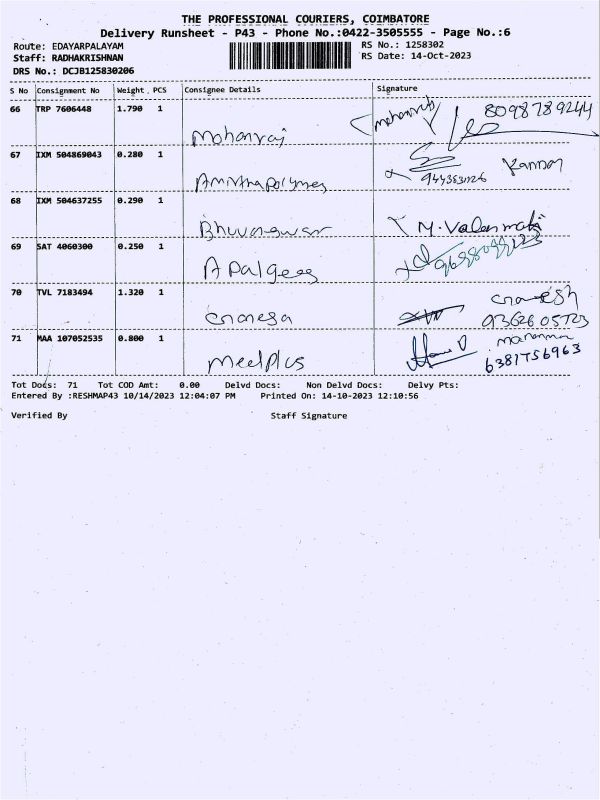 THE PROFESSIONAL COURIERS, COIMBATORE
Delivery Runsheet - P43 - Phone No.:0422-3505555 - Page No.:6
Route: EDAYARPALAYAM
RS No.: 1258302
Staff: RADHAKRISHNAN
RS Date: 14-Oct-2023
DRS No.: DCJB125830206
S No Consignment No Weight. PCS Consignee Details Signature
66 TRP 7606448 1.790 1 Mohanraj 8098789244
67 IXM 504869043 0.280 1 Kannan
68 IXM 504637255 0.290 1 M. Valarmati
69 SAT 4060300 0.250 1
70 TVL 7183494 1.320 1 Ganesa Ganesh
93626 05723
71 MAA 107052535 0.800 1 meelplus
6381756963
Tot Docs: 71 Tot COD Amt: 0.00 Delvd Docs: Non Delvd Docs: Delvy Pts:
Entered By :RESHMAP43 10/14/2023 12:04:07 PM Printed On: 14-10-2023 12:10:56
Verified By Staff Signature